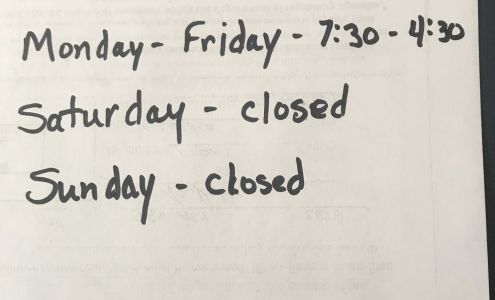 Monday - Friday - 7:30 - 4:30
Saturday - closed
Sunday - closed